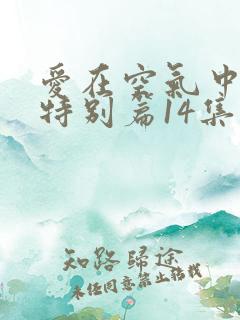 愛在空氣中
特別篇14集
知路歸途
未经同意禁止搭载